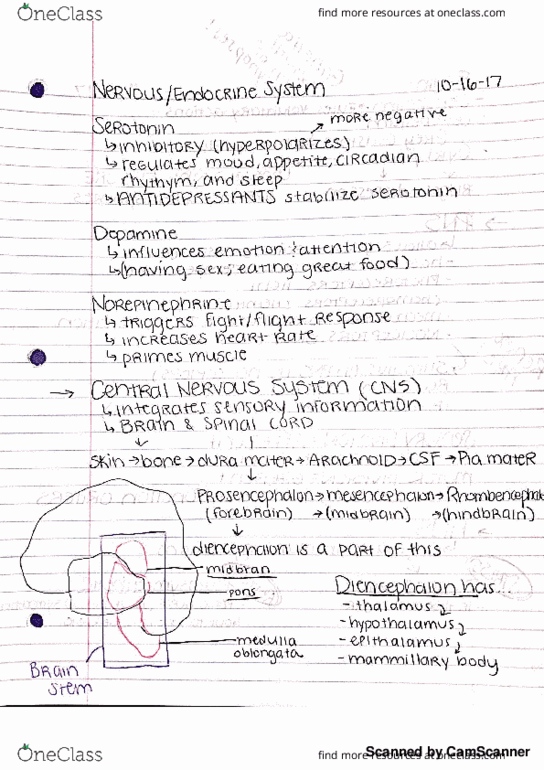 OneClass
find more resources at oneclass.com
Nervous/Endocrine System 10-16-17
Serotonin ↗ more negative
↳ inhibitory (hyperpolarizes)
↳ regulates mood, appetite, circadian
rhythym, and sleep
↳ ANTIDEPRESSANTS stabilize serotonin
Dopamine
↳ influences emotion & attention
↳ (having sex, eating great food)
Norepinephrine
↳ triggers fight/flight response
↳ increases heart rate
↳ primes muscle
→ Central Nervous System (CNS)
↳ integrates sensory information
↳ Brain & Spinal cord
skin → bone → dura mater → Arachnoid → CSF → Pia mater
Prosencephalon → mesencephalon → Rhombencephal
(forebrain) → (midbrain) → (hindbrain)
diencephalon is a part of this
midbran
pons
medulla
oblongata
Brain
stem
Diencephalon has...
- thalamus
- hypothalamus
- epithalamus
- mammillary body
OneClass
find more resources at oneclass.com
Scanned by CamScanner